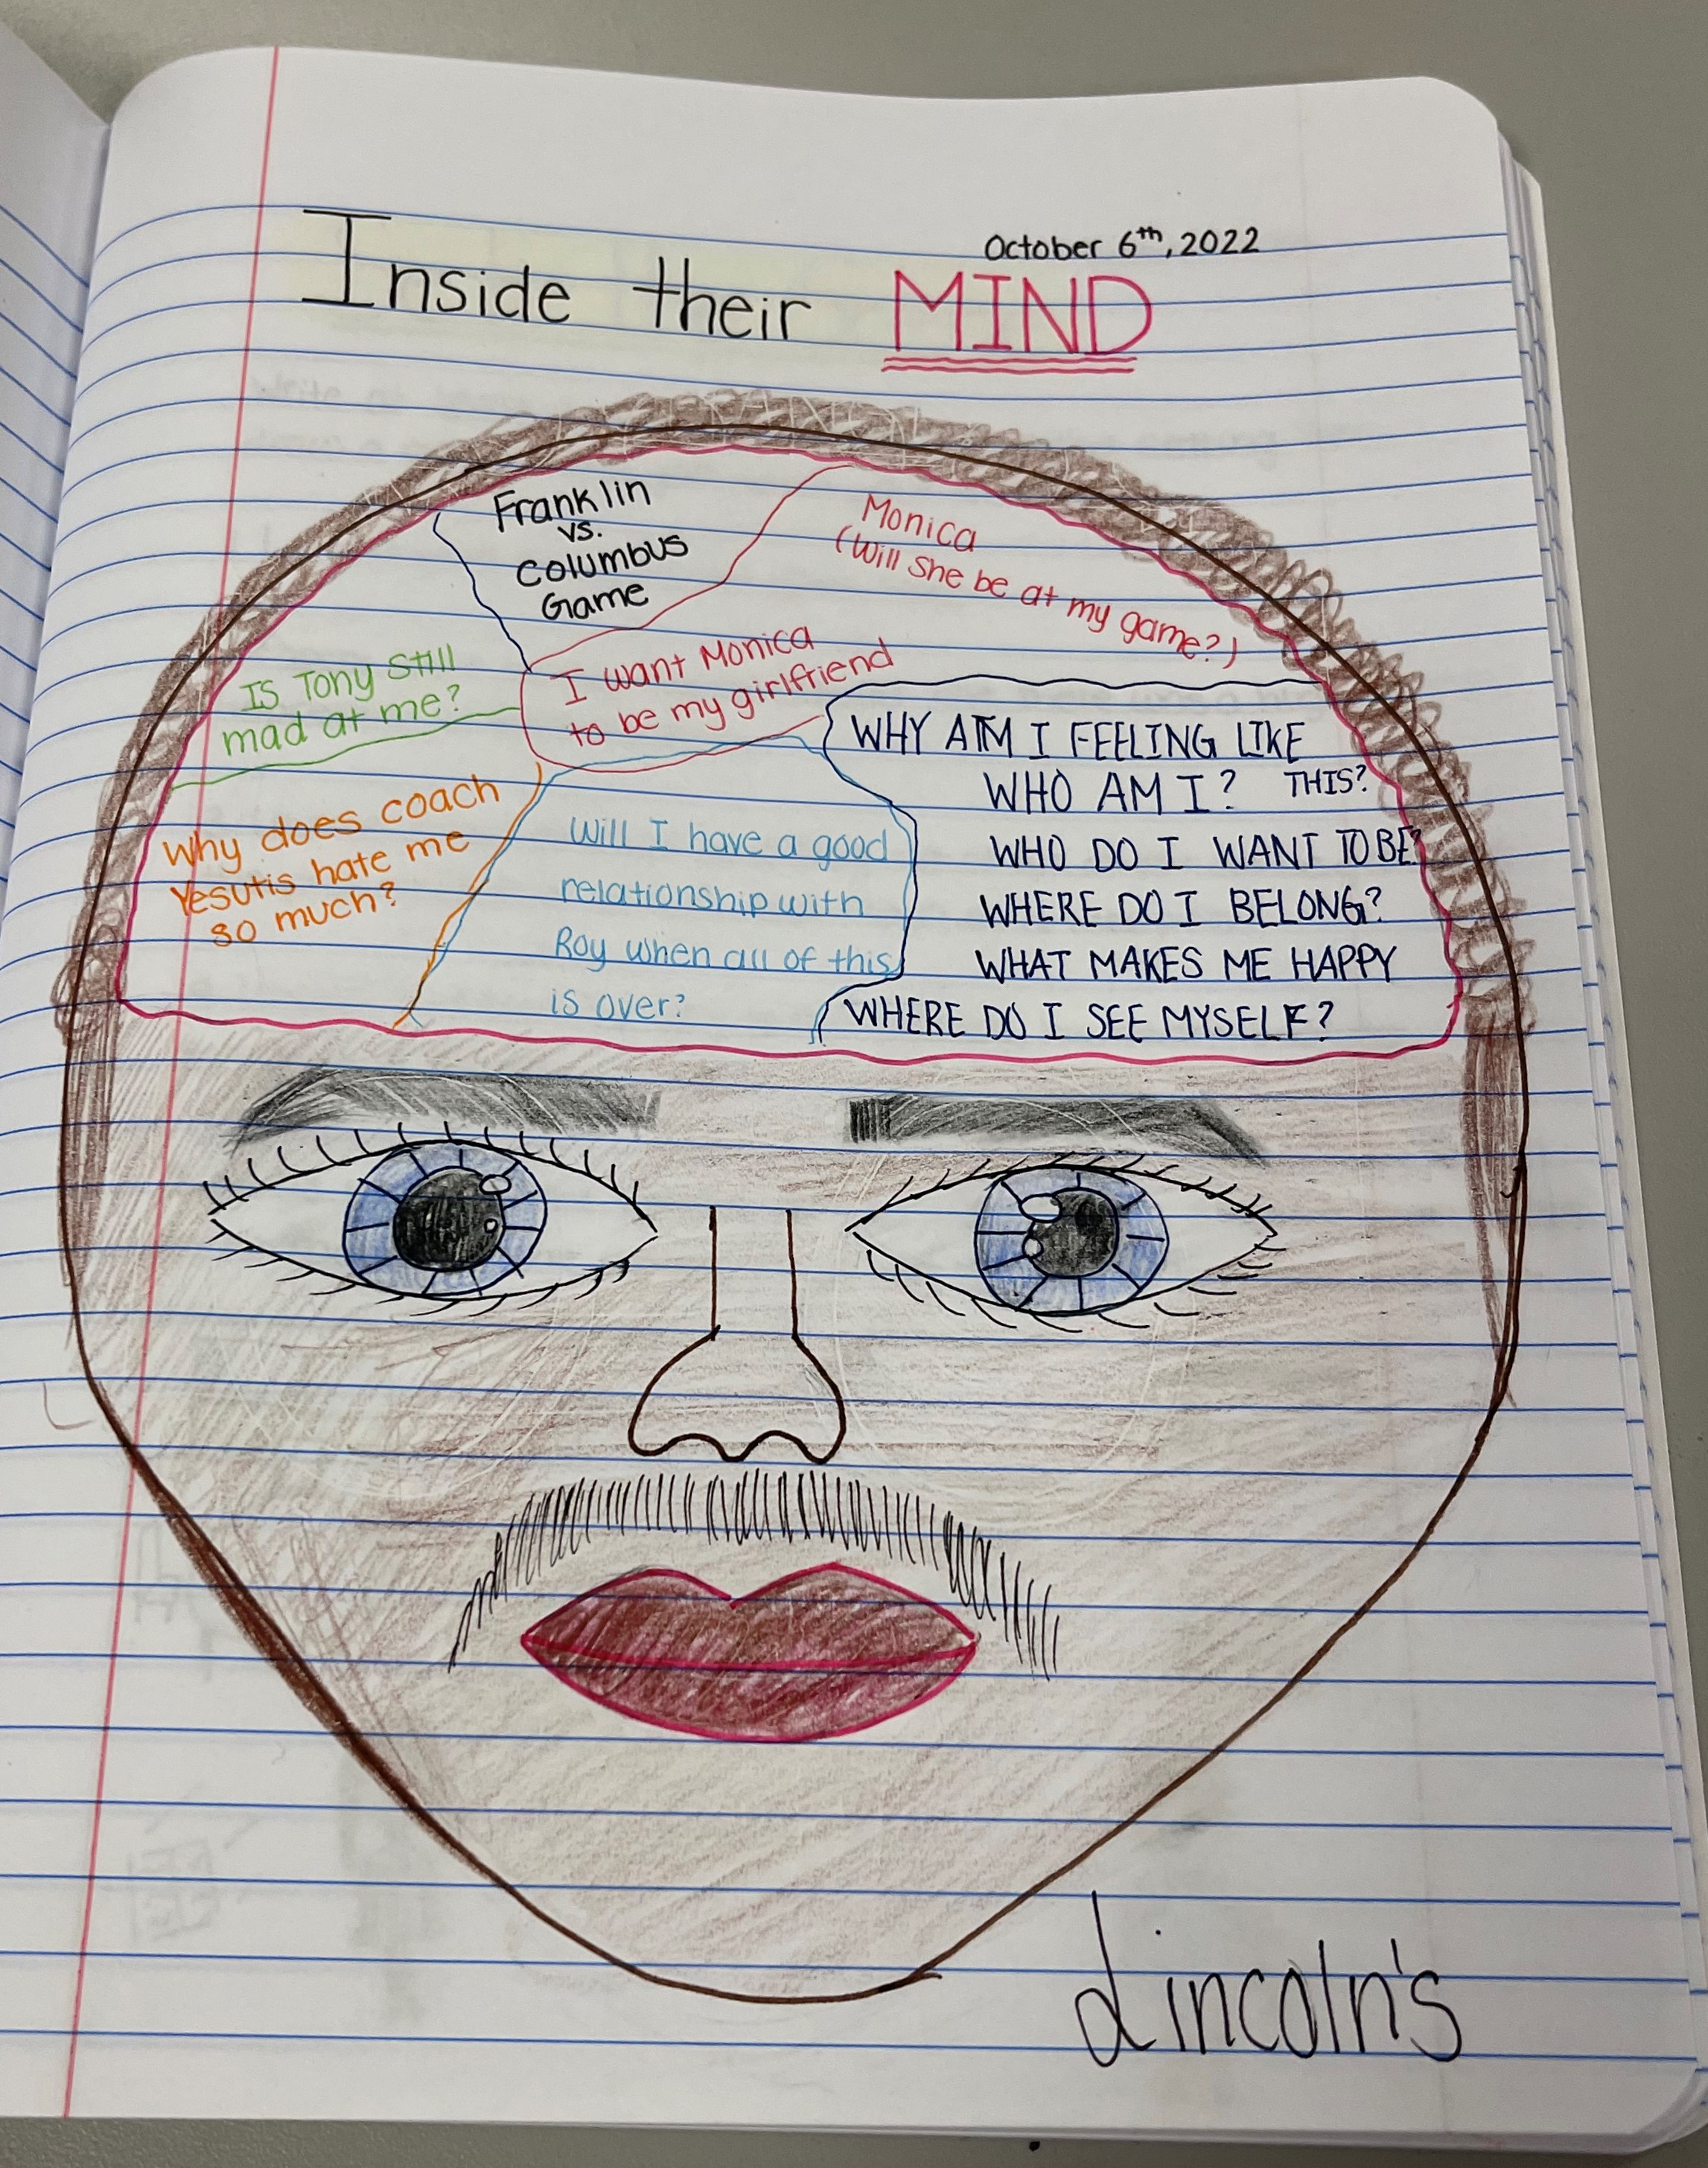 October 6th, 2022
Inside their MIND
Franklin
vs.
Columbus
Game
Monica
(Will she be at my game?)
Is Tony Still
mad at me?
I want Monica
to be my girlfriend
Why does coach
Yesutis hate me
so much?
Will I have a good
relationship with
Roy when all of this
is over?
WHY AM I FEELING LIKE
THIS?
WHO AM I?
WHO DO I WANT TO BE?
WHERE DO I BELONG?
WHAT MAKES ME HAPPY
WHERE DO I SEE MYSELF?
Lincoln's